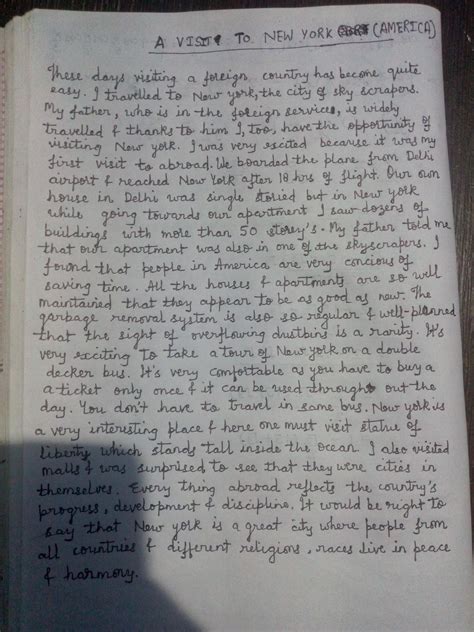 A VISIT TO NEW YORK (AMERICA)
These days visiting a foreign country has become quite
easy. I travelled to New york, the city of sky scrapers.
My father, who is in the foreign services, is widely
travelled & thanks to him I, too, have the opportunity of
visiting New york. I was very excited because it was my
first visit to abroad. We boarded the plane from Delhi
airport & reached New York after 18 hrs of flight. Our own
house in Delhi was single storied but in New york
while going towards our apartment I saw dozens of
buildings with more than 50 storey's. My father told me
that our apartment was also in one of the skyscrapers. I
found that people in America are very concious of
saving time. All the houses & apartments are so well
maintained that they appear to be as good as new. The
garbage removal system is also so regular & well-planned
that the sight of overflowing dustbins is a rarity. It's
very exciting to take a tour of New York on a double
decker bus. It's very comfortable as you have to buy a
a ticket only once & it can be used through out the
day. You don't have to travel in same bus. New york is
a very interesting place & here one must visit statue of
liberty which stands tall inside the ocean. I also visited
malls & was surprised to see that they were cities in
themselves. Every thing abroad reflects the country's
progress, development & discipline. It would be right to
say that New york is a great city where people from
all countries & different religions, races live in peace
& harmony.